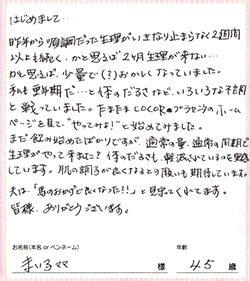 はじめまして…
昨年から順調だった生理がいきなり止まらなく2週間
以上も続く、かと思えば2ヶ月生理が来ない…
かと思えば、少量で(?)おかしくなっていました。
私も更年期だ…と体のだるさなど、いろいろな不調
と戦っていました。たまたまCOCORO プラセンタのホーム
ページを見て、"やってみよ!"と始めてみました。
まだ飲み始めたばかりですが、通常の量、通常の周期で
生理がやって来ました? 体のだるさも、軽減されているのを実感
しています。肌の調子が良くなるとの願いも期待しています。
夫は、「馬のおかげで良くなった?!」と見守ってくれてます。
皆様、ありがとうございます。
お名前(本名 or ペンネーム) 年齢
まいろママ 様 45 歳